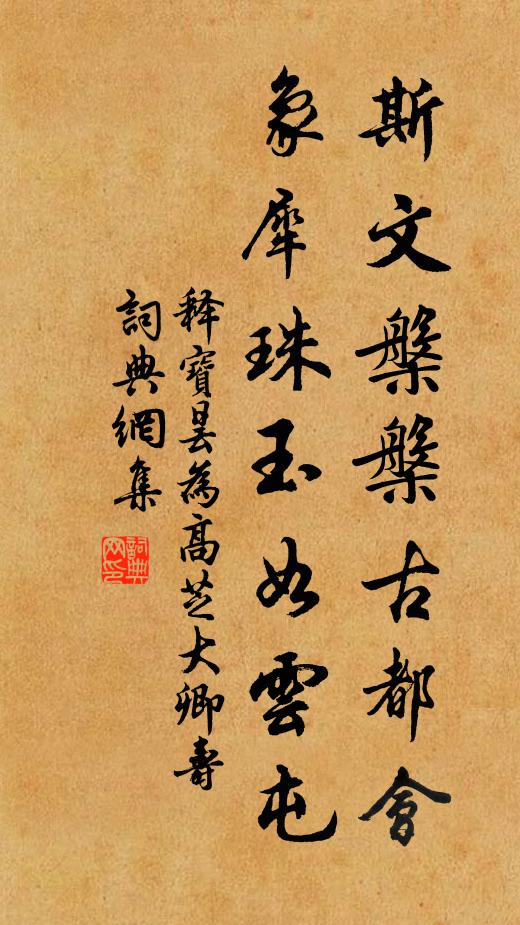 斯文槃槃古都會
象犀珠玉如雲屯
释寶昙為高芝大卿壽
詞典網集
詞典网印